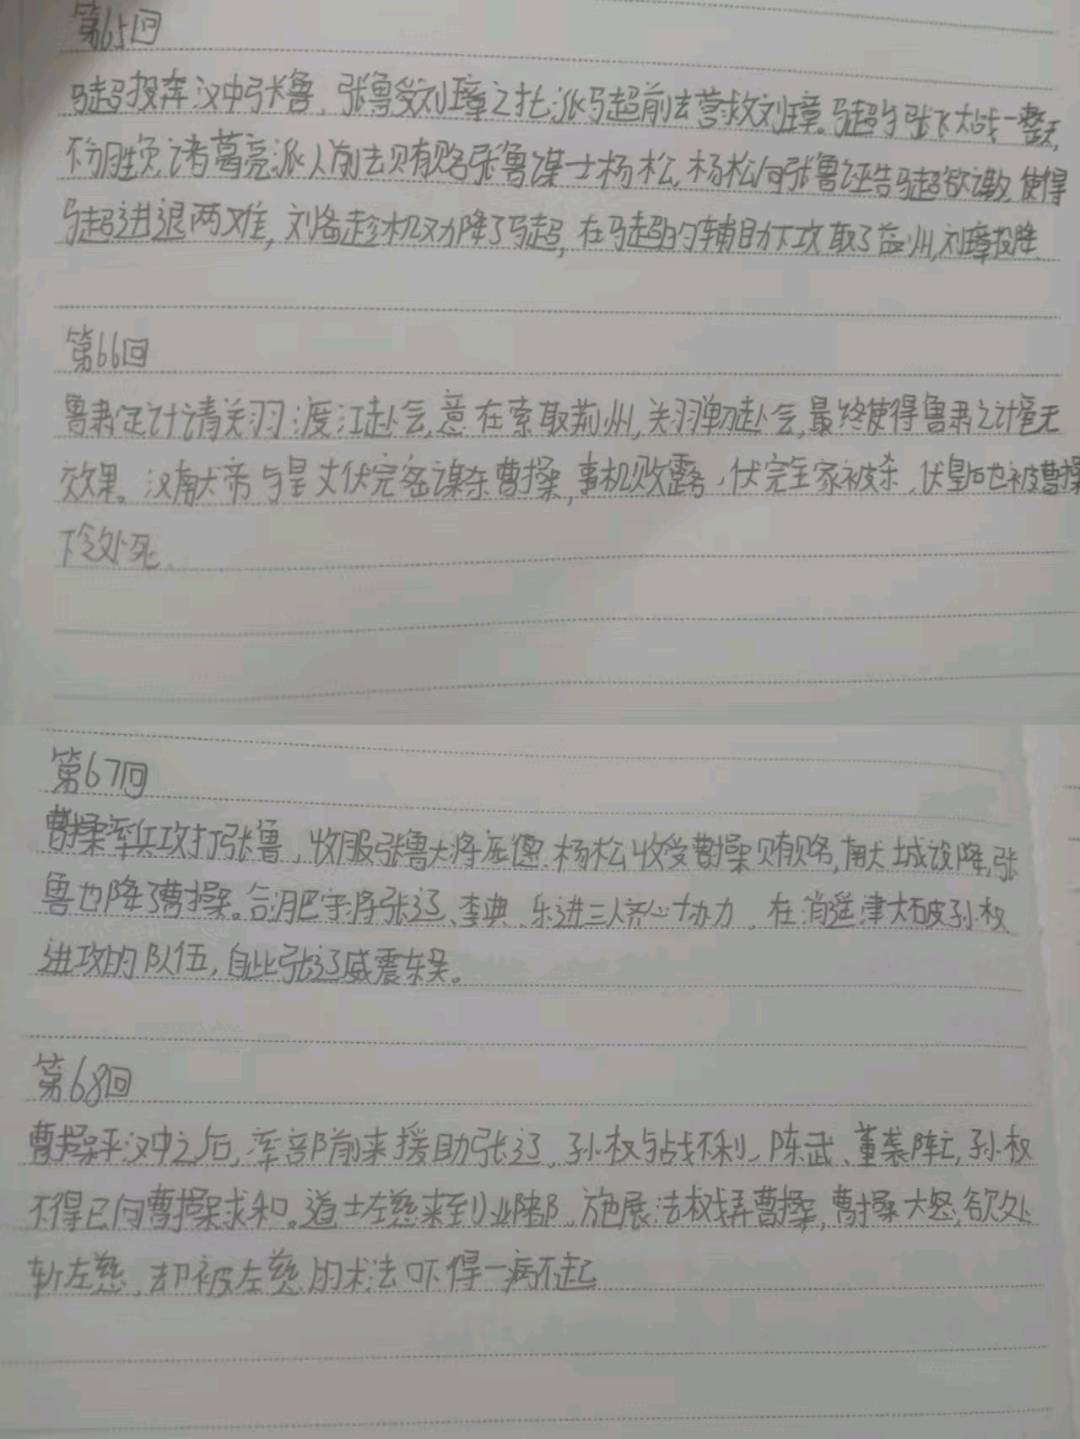 第65回
马超投奔汉中张鲁，张鲁受刘璋之托，派马超前去营救刘璋。马超与张飞大战一整天，
不分胜负，诸葛亮派人前去贿赂张鲁谋士杨松，杨松向张鲁诬告马超欲谋叛，使得
马超进退两难，刘备趁机劝降了马超，在马超的辅助下攻取了益州，刘璋投降。
第66回
鲁肃定计请关羽渡江赴会，意在索取荆州，关羽单刀赴会，最终使得鲁肃之计毫无
效果。汉献帝与皇丈伏完密谋杀曹操，事机败露，伏完全家被杀，伏皇后也被曹操
下令处死。
第67回
曹操率兵攻打张鲁，收服张鲁大将庞德。杨松收受曹操贿赂，献城投降，张
鲁也降了曹操。合肥守将张辽、李典、乐进三人齐心协力，在逍遥津大破孙权
进攻的队伍，自此张辽威震东吴。
第68回
曹操平汉中之后，率部前来援助张辽，孙权与战不利，陈武、董袭阵亡，孙权
不得已向曹操求和。道士左慈来到邺都，施展法术戏弄曹操，曹操大怒，欲处
斩左慈，却被左慈的术法吓得一病不起